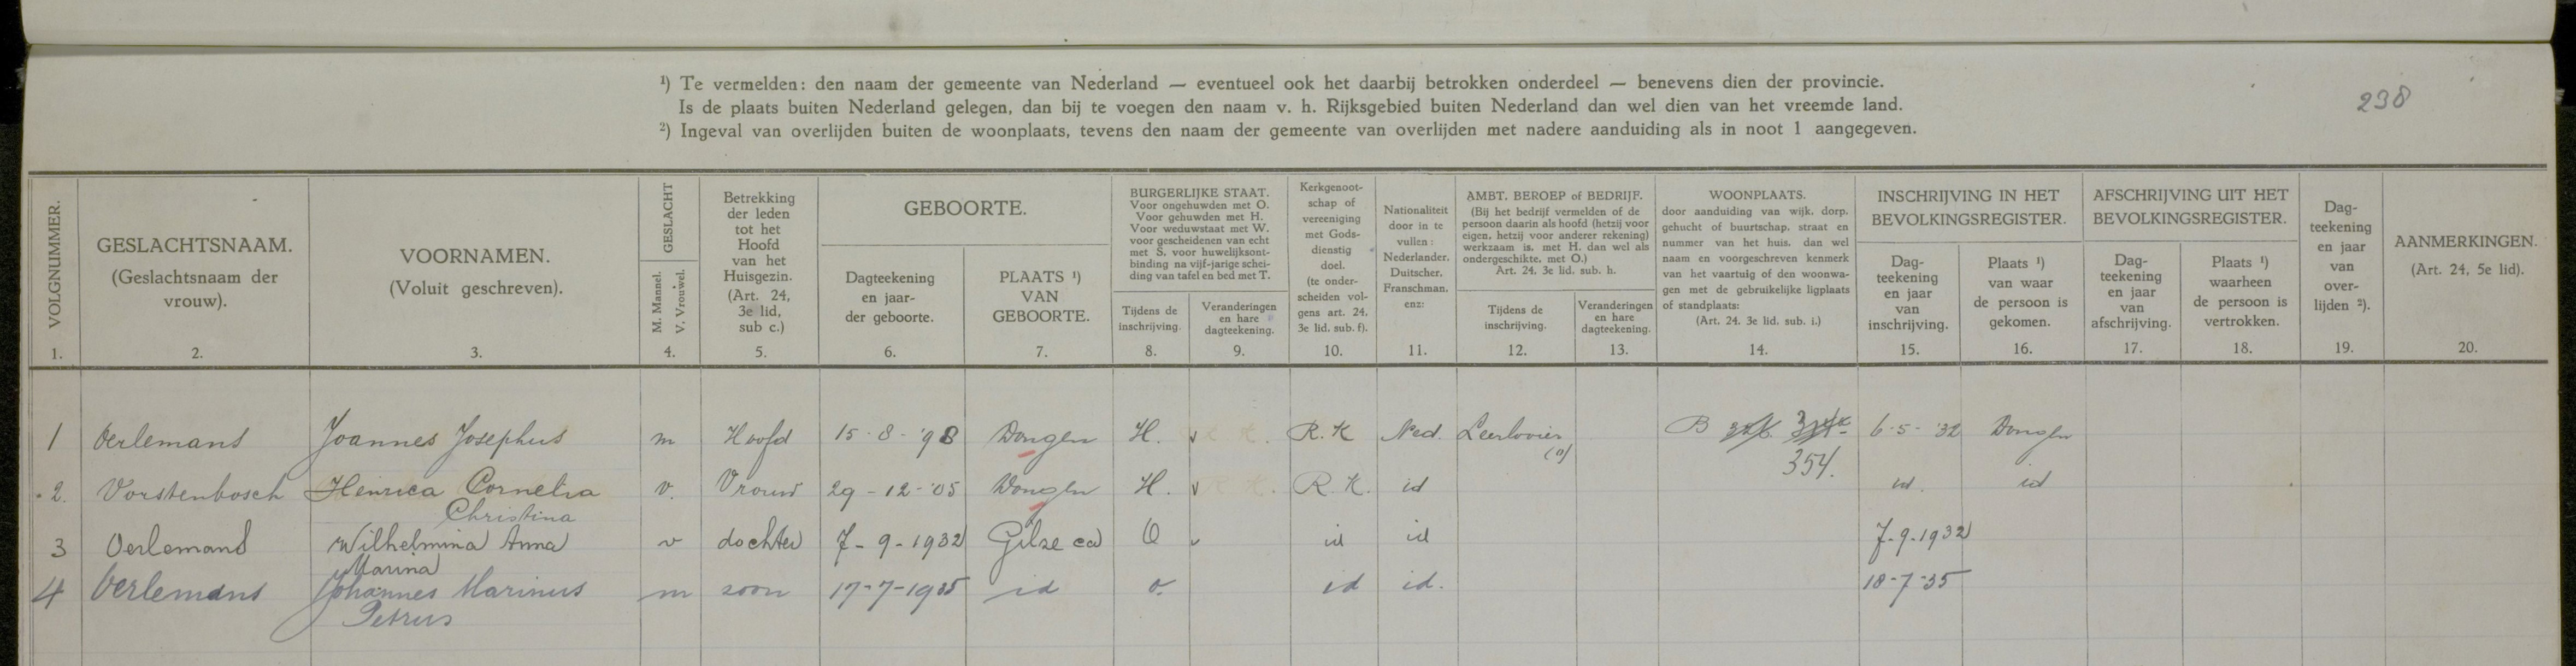 ¹) Te vermelden: den naam der gemeente van Nederland — eventueel ook het daarbij betrokken onderdeel — benevens dien der provincie.
Is de plaats buiten Nederland gelegen, dan bij te voegen den naam v. h. Rijksgebied buiten Nederland dan wel dien van het vreemde land.
²) Ingeval van overlijden buiten de woonplaats, tevens den naam der gemeente van overlijden met nadere aanduiding als in noot 1 aangegeven.
238
VOLGNUMMER.
1.
GESLACHTSNAAM.
(Geslachtsnaam der
vrouw).
2.
VOORNAMEN.
(Voluit geschreven).
3.
GESLACHT
M. Mannel.
V. Vrouwel.
4.
Betrekking
der leden
tot het
Hoofd
van het
Huisgezin.
(Art. 24,
3e lid,
sub c.)
5.
GEBOORTE.
Dagteekening
en jaar-
der geboorte.
6.
PLAATS ¹)
VAN
GEBOORTE.
7.
BURGERLIJKE STAAT.
Voor ongehuwden met O.
Voor gehuwden met H.
Voor weduwstaat met W.
voor gescheidenen van echt
met S. voor huwelijksont-
binding na vijf-jarige schei-
ding van tafel en bed met T.
Tijdens de
inschrijving.
8.
Veranderingen
en hare
dagteekening.
9.
Kerkgenoot-
schap of
vereeniging
met Gods-
dienstig
doel.
(te onder-
scheiden vol-
gens art. 24.
3e lid. sub. f).
10.
Nationaliteit
door in te
vullen:
Nederlander.
Duitscher.
Franschman.
enz:
11.
AMBT. BEROEP of BEDRIJF.
(Bij het bedrijf vermelden of de
persoon daarin als hoofd (hetzij voor
eigen, hetzij voor anderer rekening)
werkzaam is. met H. dan wel als
ondergeschikte. met O.)
Art. 24. 3e lid. sub. h.
Tijdens de
inschrijving.
12.
Veranderingen
en hare
dagteekening.
13.
WOONPLAATS.
door aanduiding van wijk. dorp.
gehucht of buurtschap. straat en
nummer van het huis. dan wel
naam en voorgeschreven kenmerk
van het vaartuig of den woonwa-
gen met de gebruikelijke ligplaats
of standplaats:
(Art. 24. 3e lid. sub. i.)
14.
INSCHRIJVING IN HET
BEVOLKINGSREGISTER.
Dag-
teekening
en jaar
van
inschrijving.
15.
Plaats ¹)
van waar
de persoon is
gekomen.
16.
AFSCHRIJVING UIT HET
BEVOLKINGSREGISTER.
Dag-
teekening
en jaar
van
afschrijving.
17.
Plaats ¹)
waarheen
de persoon is
vertrokken.
18.
Dag-
teekening
en jaar
van
over-
lijden ²).
19.
AANMERKINGEN.
(Art. 24, 5e lid).
20.
1 Oerlemans Joannes Josephus m Hoofd 15-8-'98 Dongen H. v R.K Ned. Leerlooier B 6-5-'32 Dongen
(o) 354.
2. Vorstenbosch Henrica Cornelia v. Vrouw 29-12-'05 Dongen H. v R.K. id id. id
Christina
3 Oerlemans Wilhelmina Anna v dochter 7-9-1932 Gilze ca O v id id 7-9-1932
Marina
4 Oerlemans Johannes Marinus m zoon 17-7-1935 id o. id id. 18-7-35
Petrus